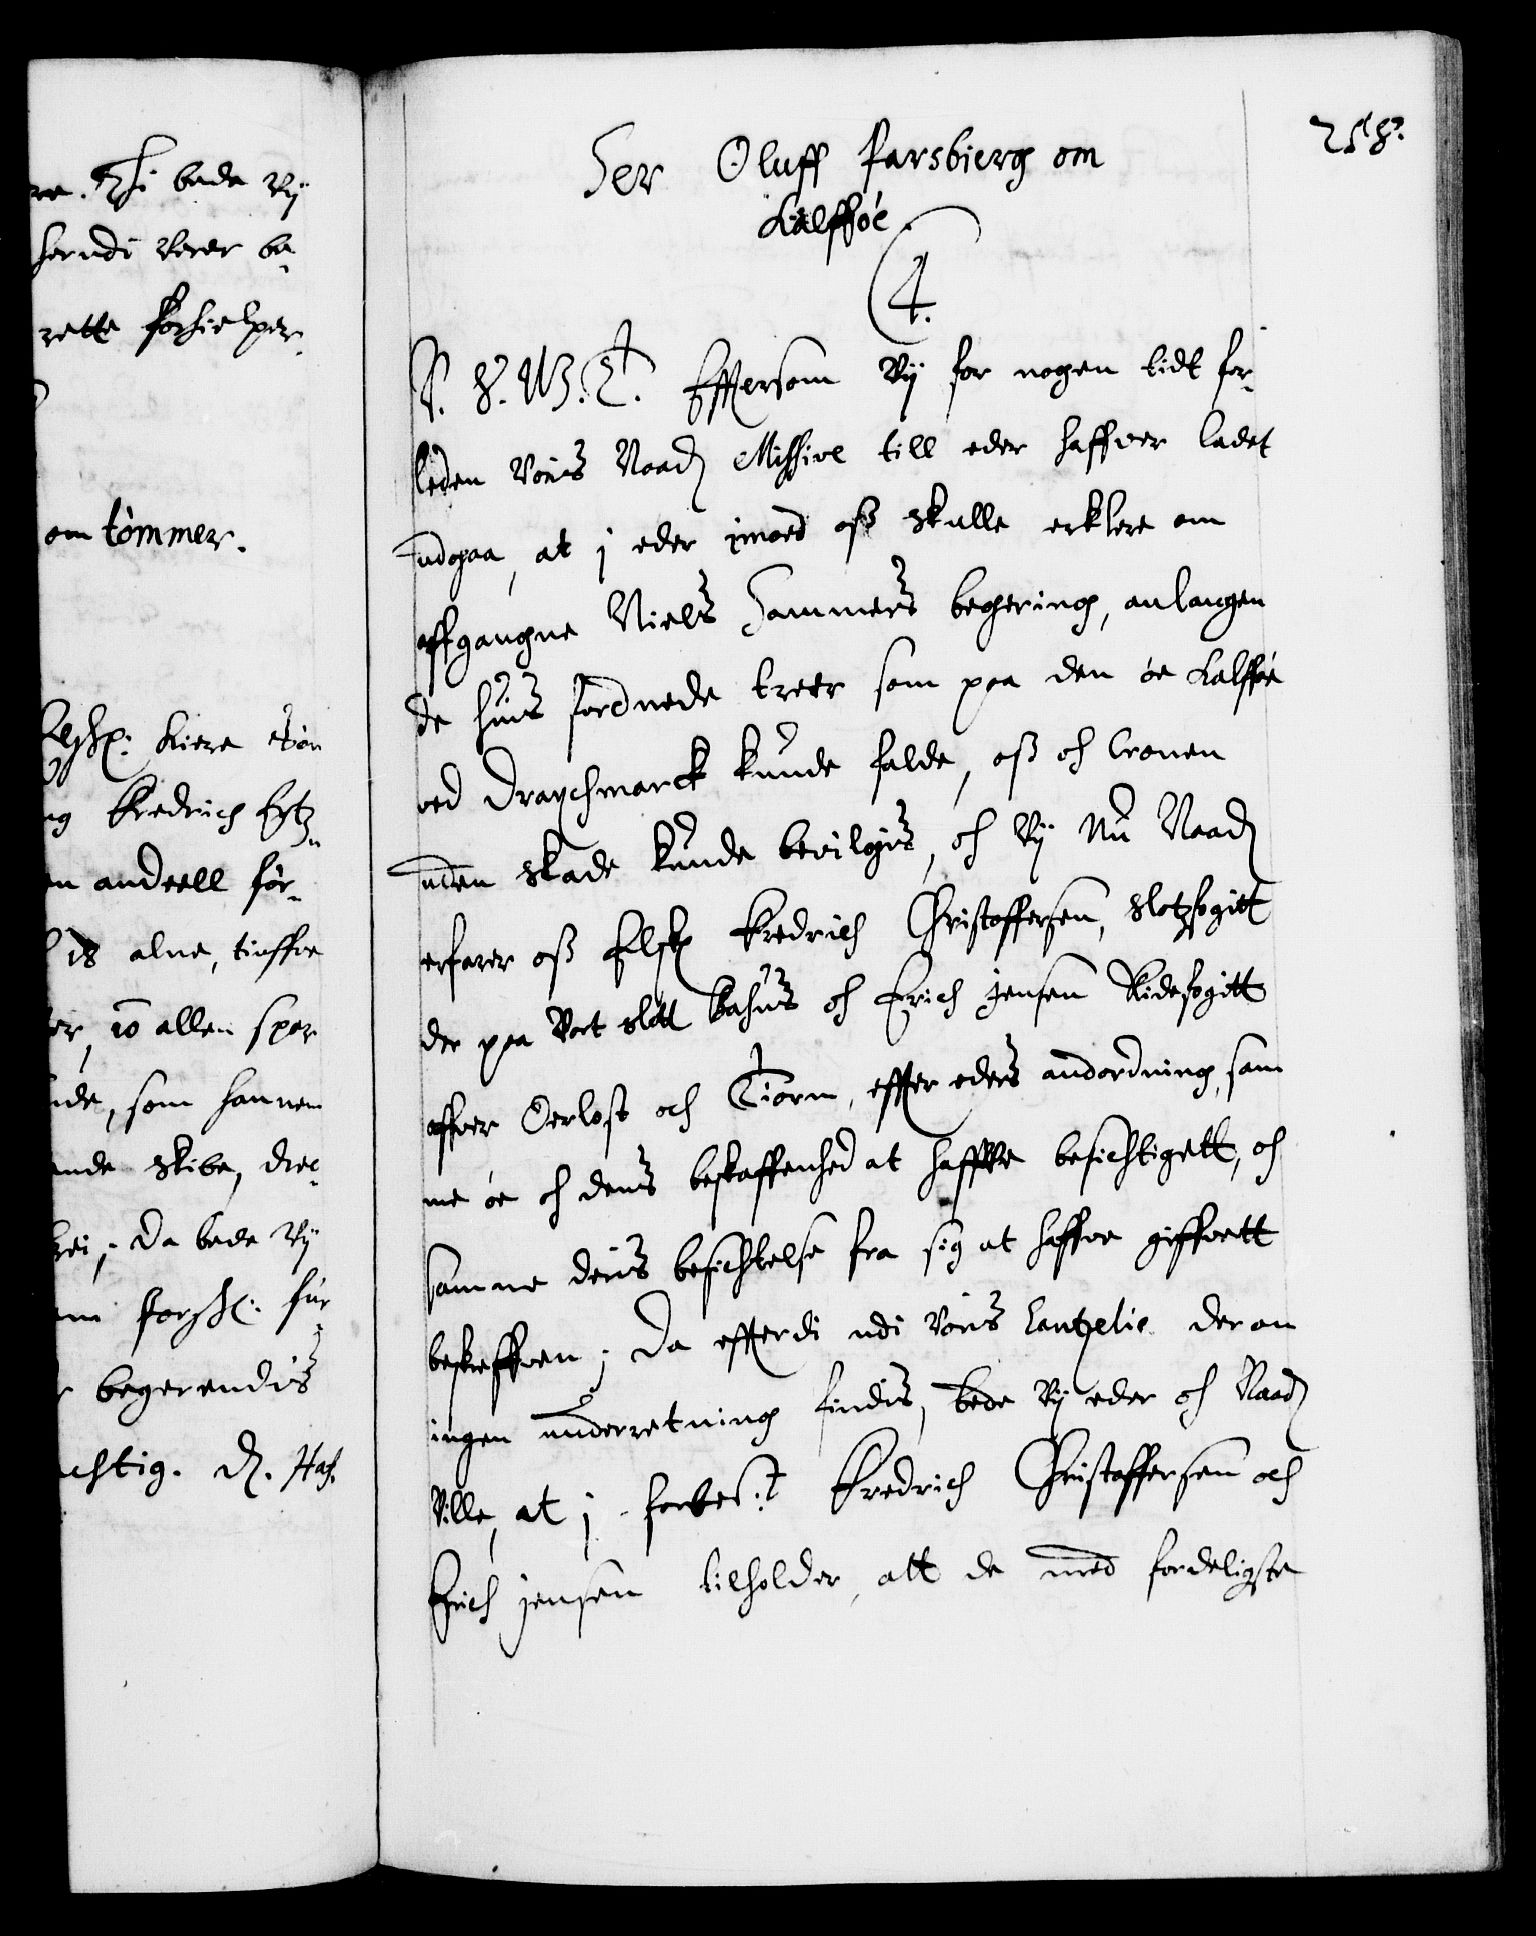 re. Thi bede Vij
herudi verer be¬
rette forhielper.
om tømmer.
Elskel: kiere Søn
Fredrich Ertz¬
en andeell før¬
18 alne, tiuffve
er, 10 allen spar
nde, som hannem
ende skibe, der¬
; Da bede Vij
forskr: für¬
r begerendis
achtig. D. Haf.
258.
Her Oluff Parsbierg om
Kalfføe
C 4.
P. G. W. T. Effttersom Vij for nogen tidt for¬
leden Voris Naad Missive till eder haffver ladet
udgaa, at j eder imoed oß skulle erklere om
affgangne Niels Hammers begering, anlangen
de huis fordnede treer som paa den øe Kalfføe
ved Dragsmarck kunde falde, oß och Cronen
uden skade kunde bevilgis, och Vij Nu Naad
erfarer oß Elsk Fredrich Christoffersen, Slotzfogitt
der paa Vort slott Bahus och Erich Jensen Ridefogitt
offver Oerost och Tiørn, effter eders andordning, sam
me øe och dens beskaffenhed at haffve besichtigett, och
samme deris besichtelse fra sig at haffve giffvett
beskreffven; Da efftterdi udi Voris Cantzelie derom
ingen underretning findis, bede Vij eder och Naad
Ville, at j forbe:t Fredrich Christoffersen och
Erich Jensen tilholder, att de med fordeligste